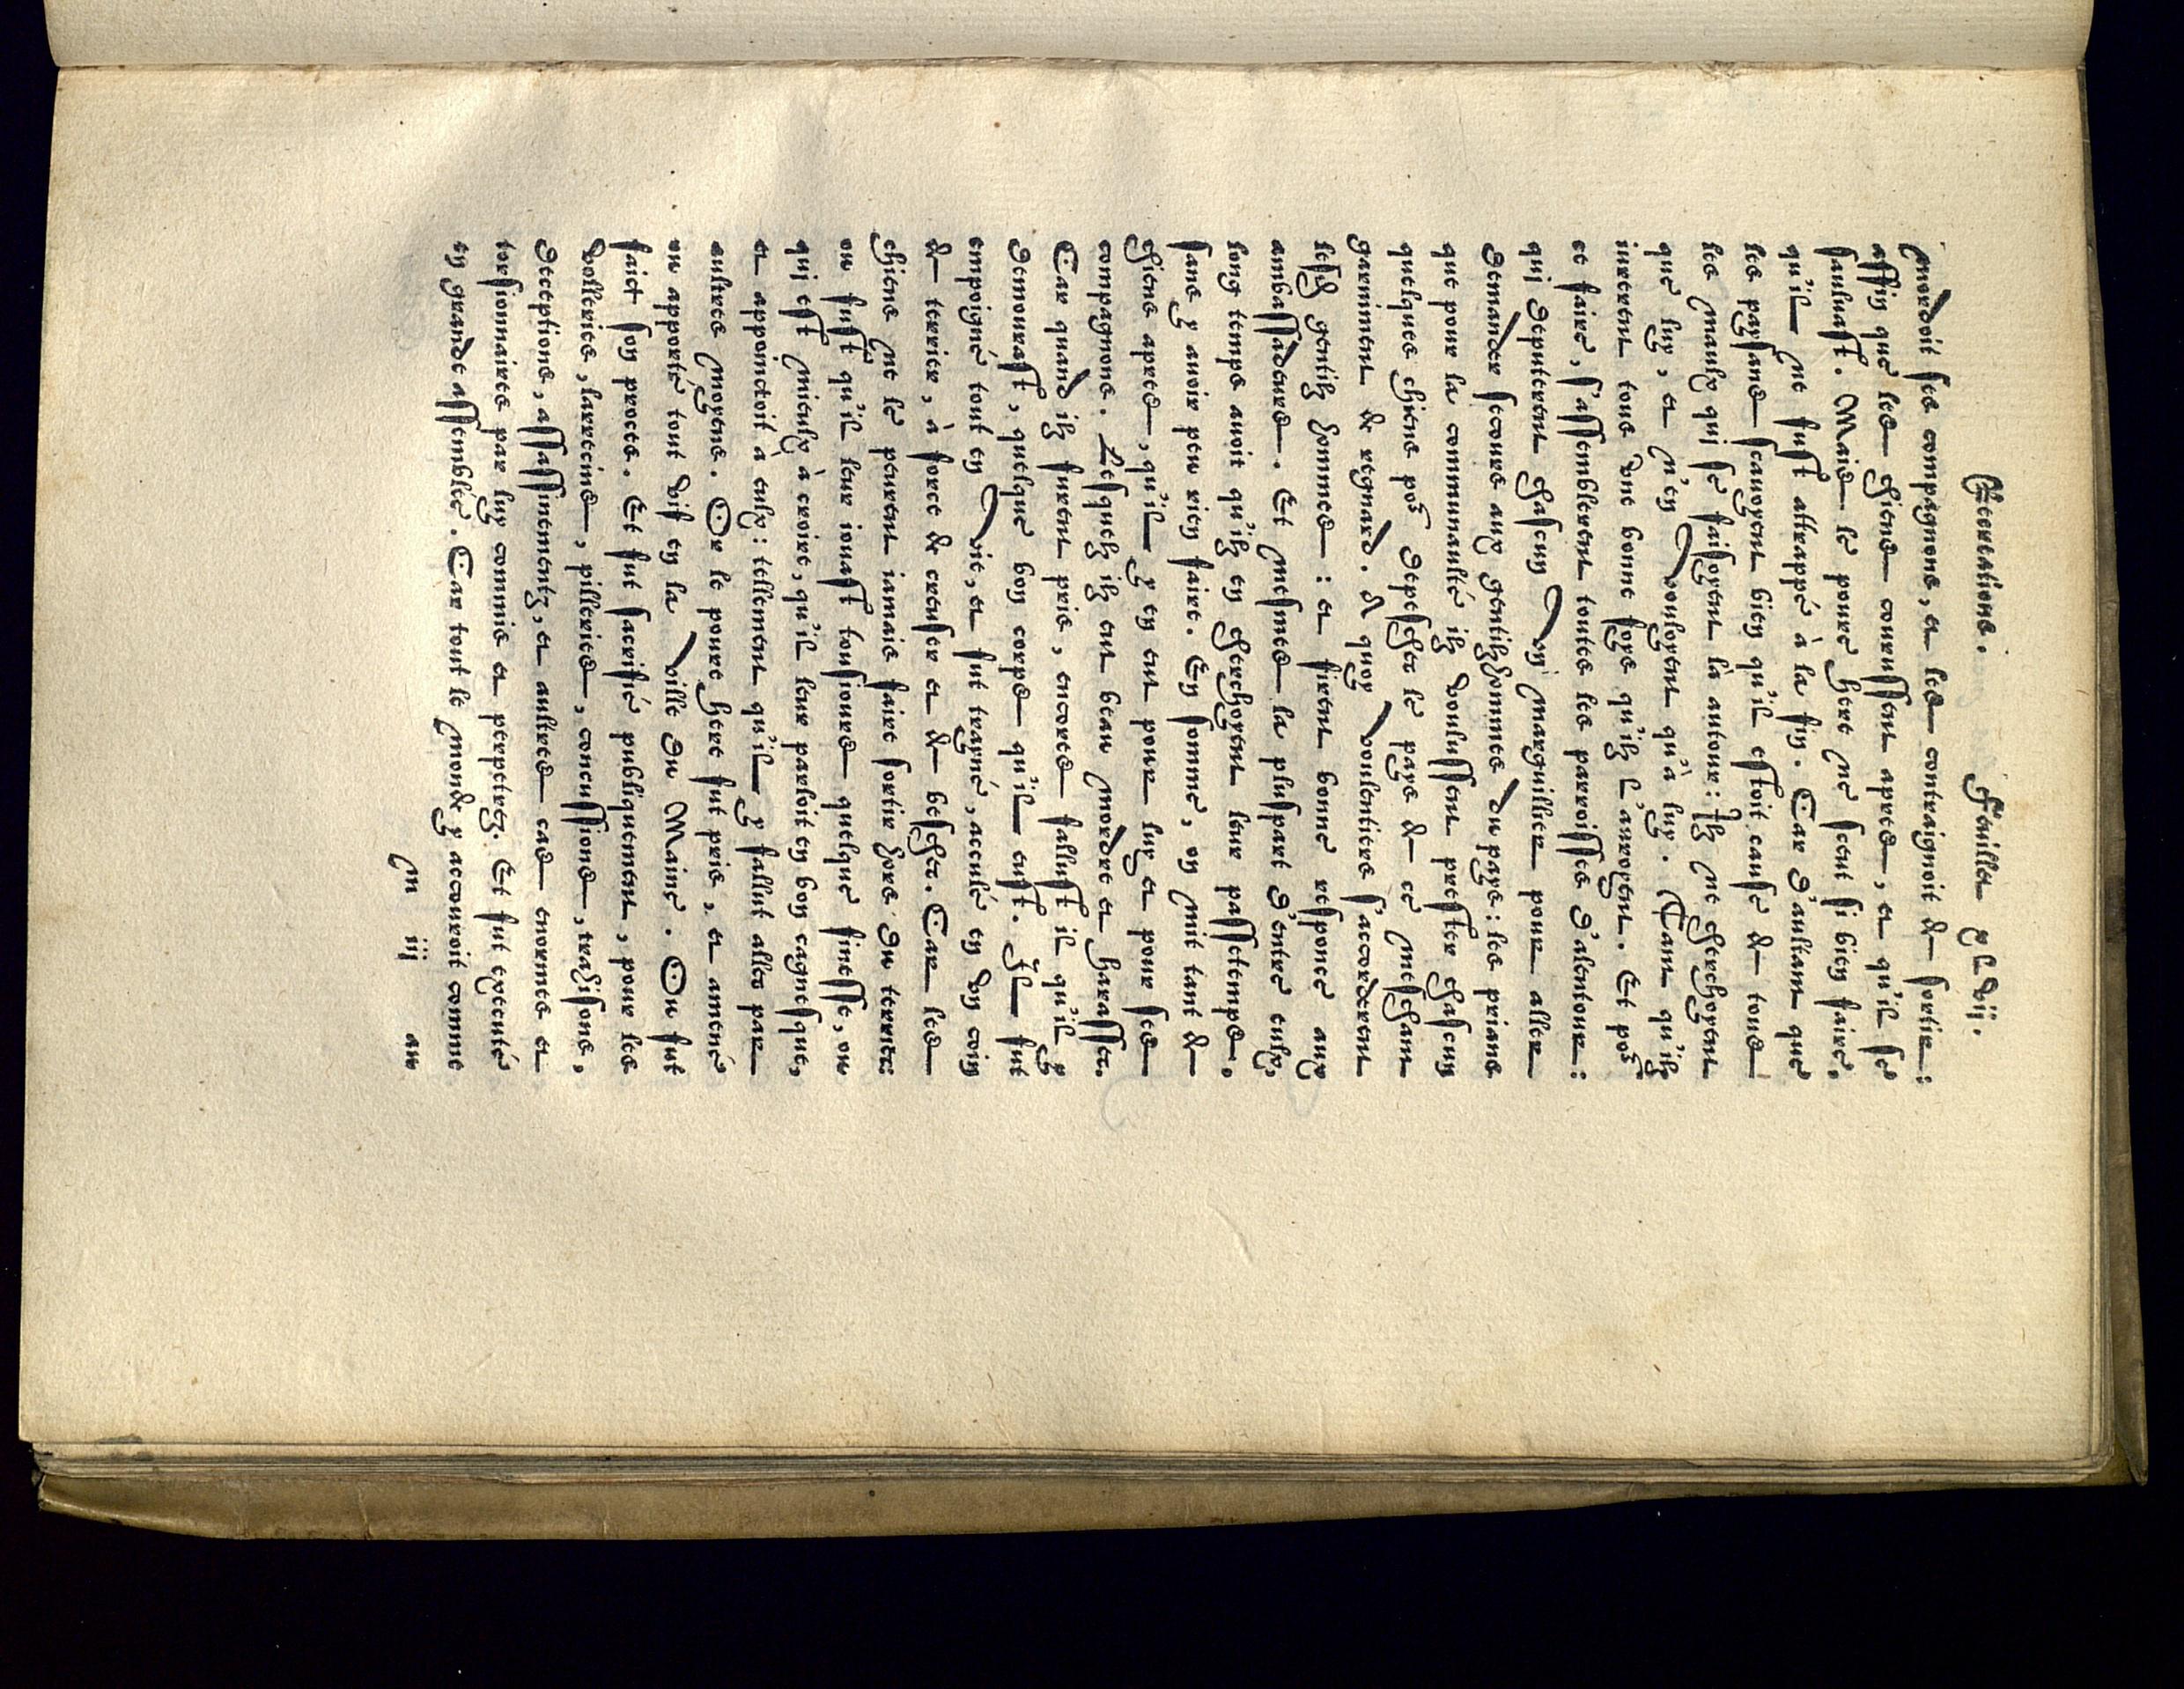 Recreations. Feuillet xlvij.
mordoit ses compagnons, et les contraignoit de sortir:
affin que les chiens courussent apres, et qu'il se
sauluast. Mais le poure here ne sceut si bien faire,
qu'il ne fust attrappé à la fin. Car d'aultant que
les paysans scauoyent bien qu'il estoit cause de tous
les maulx qui se faisoyent là autour: Ilz ne cherchoyent
que luy, et n'en vouloyent qu'à luy. Tant qu'ilz
iurerent tous vne bonne foys qu'ilz l'auroyent. Et por
ce faire, s'assemblerent toutes les parroisses d'alentour:
qui deputerent chascun vn marguillier pour aller
demander secours aux gentilzhommes du pays: les prians
que pour la communaulté ilz voulussent prester chascun
quelques chiens por depescher le pays de ce meschant
garniment de regnard. A quoy voulentiers s'accorderent
lesd gentilz hommes: et firent bonne responce aux
ambassadeurs. Et mesmes la pluspart d'entre eulx,
long temps auoit qu'ilz en cherchoyent leur passetemps,
sans y auoir peu rien faire. En somme, on mit tant de
chiens apres, qu'il y en eut pour luy et pour ses
compagnons. Lesquelz ilz eut beau mordre et harasser.
Car quand ilz furent pris, encores fallust il qu'il y
demourast, quelque bon corps qu'il eust. Il fut
empoigné tout en vie, et fut trayné, acculé en vn coin
de terrier, à force de creuser et de bescher. Car les
chiens ne le peurent iamais faire sortir hors du terrier:
ou fust qu'il leur iouast tousiours quelque finesse, ou
qui est mieulx à croire, qu'il leur parloit en bon cagnesque,
et appoinctoit à eulx: tellement qu'il y fallut aller par
aultres moyens. Or le poure here fut pris, et amené
ou apporté tout vif en la ville du Maine. Ou fut
faict son proces. Et fut sacrifié publiquement, pour les
volleries, larrecins, pilleries, concussions, trahisons,
deceptions, assassinementz, et aultres cas enormes et
torsionnaires par luy commis et perpetrez. Et fut executé
en grande assemblée. Car tout le monde y accouroit comme
m iij au